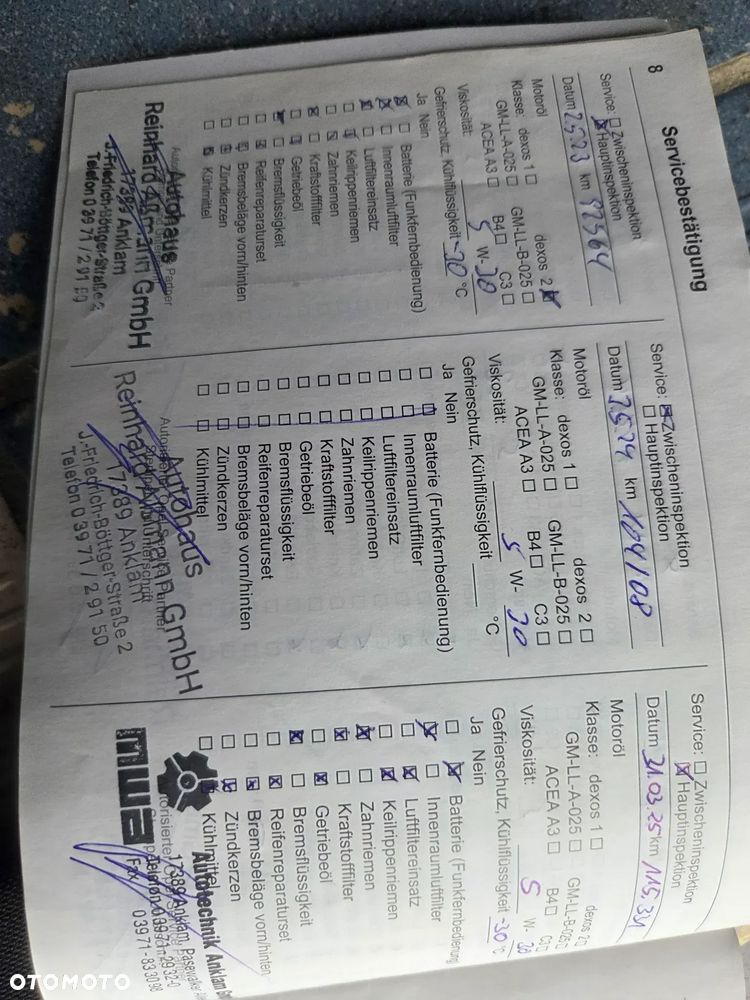 8
Servicebestätigung
Service: Zwischeninspektion
Hauptinspektion
Datum 2.5.23 km 92364
Motoröl
Klasse: dexos 1 dexos 2
GM-LL-A-025 GM-LL-B-025
ACEA A3 B4 C3
Viskosität: 5 W- 30
Gefrierschutz, Kühlflüssigkeit -30 °C
Ja Nein
Batterie (Funkfernbedienung)
Innenraumluftfilter
Luftfiltereinsatz
Keilrippenriemen
Zahnriemen
Kraftstofffilter
Getriebeöl
Bremsflüssigkeit
Reifenreparaturset
Bremsbeläge vorn/hinten
Zündkerzen
Kühlmittel
Autohaus
Reinhard GmbH
J.-Friedrich-Böttger-Straße 2
17389 Anklam
Telefon 0 39 71 / 2 91 50
Service: Zwischeninspektion
Hauptinspektion
Datum 3.5.24 km 104108
Motoröl
Klasse: dexos 1 dexos 2
GM-LL-A-025 GM-LL-B-025
ACEA A3 B4 C3
Viskosität: 5 W- 30
Gefrierschutz, Kühlflüssigkeit °C
Ja Nein
Batterie (Funkfernbedienung)
Innenraumluftfilter
Luftfiltereinsatz
Keilrippenriemen
Zahnriemen
Kraftstofffilter
Getriebeöl
Bremsflüssigkeit
Reifenreparaturset
Bremsbeläge vorn/hinten
Zündkerzen
Kühlmittel
Autohaus
Reinhard GmbH
J.-Friedrich-Böttger-Straße 2
17389 Anklam
Telefon 0 39 71 / 2 91 50
Service: Zwischeninspektion
Hauptinspektion
Datum 31.03.25 km 115.331
Motoröl
Klasse: dexos 1 dexos 2
GM-LL-A-025 GM-LL-B-025
ACEA A3 B4 C3
Viskosität: 5 W- 30
Gefrierschutz, Kühlflüssigkeit -30 °C
Ja Nein
Batterie (Funkfernbedienung)
Innenraumluftfilter
Luftfiltereinsatz
Keilrippenriemen
Zahnriemen
Kraftstofffilter
Getriebeöl
Bremsflüssigkeit
Reifenreparaturset
Bremsbeläge vorn/hinten
Zündkerzen
Kühlmittel
Autotechnik Anklam
17389 Anklam, Pasewalker
Fax 03971-833098
OTOMOTO